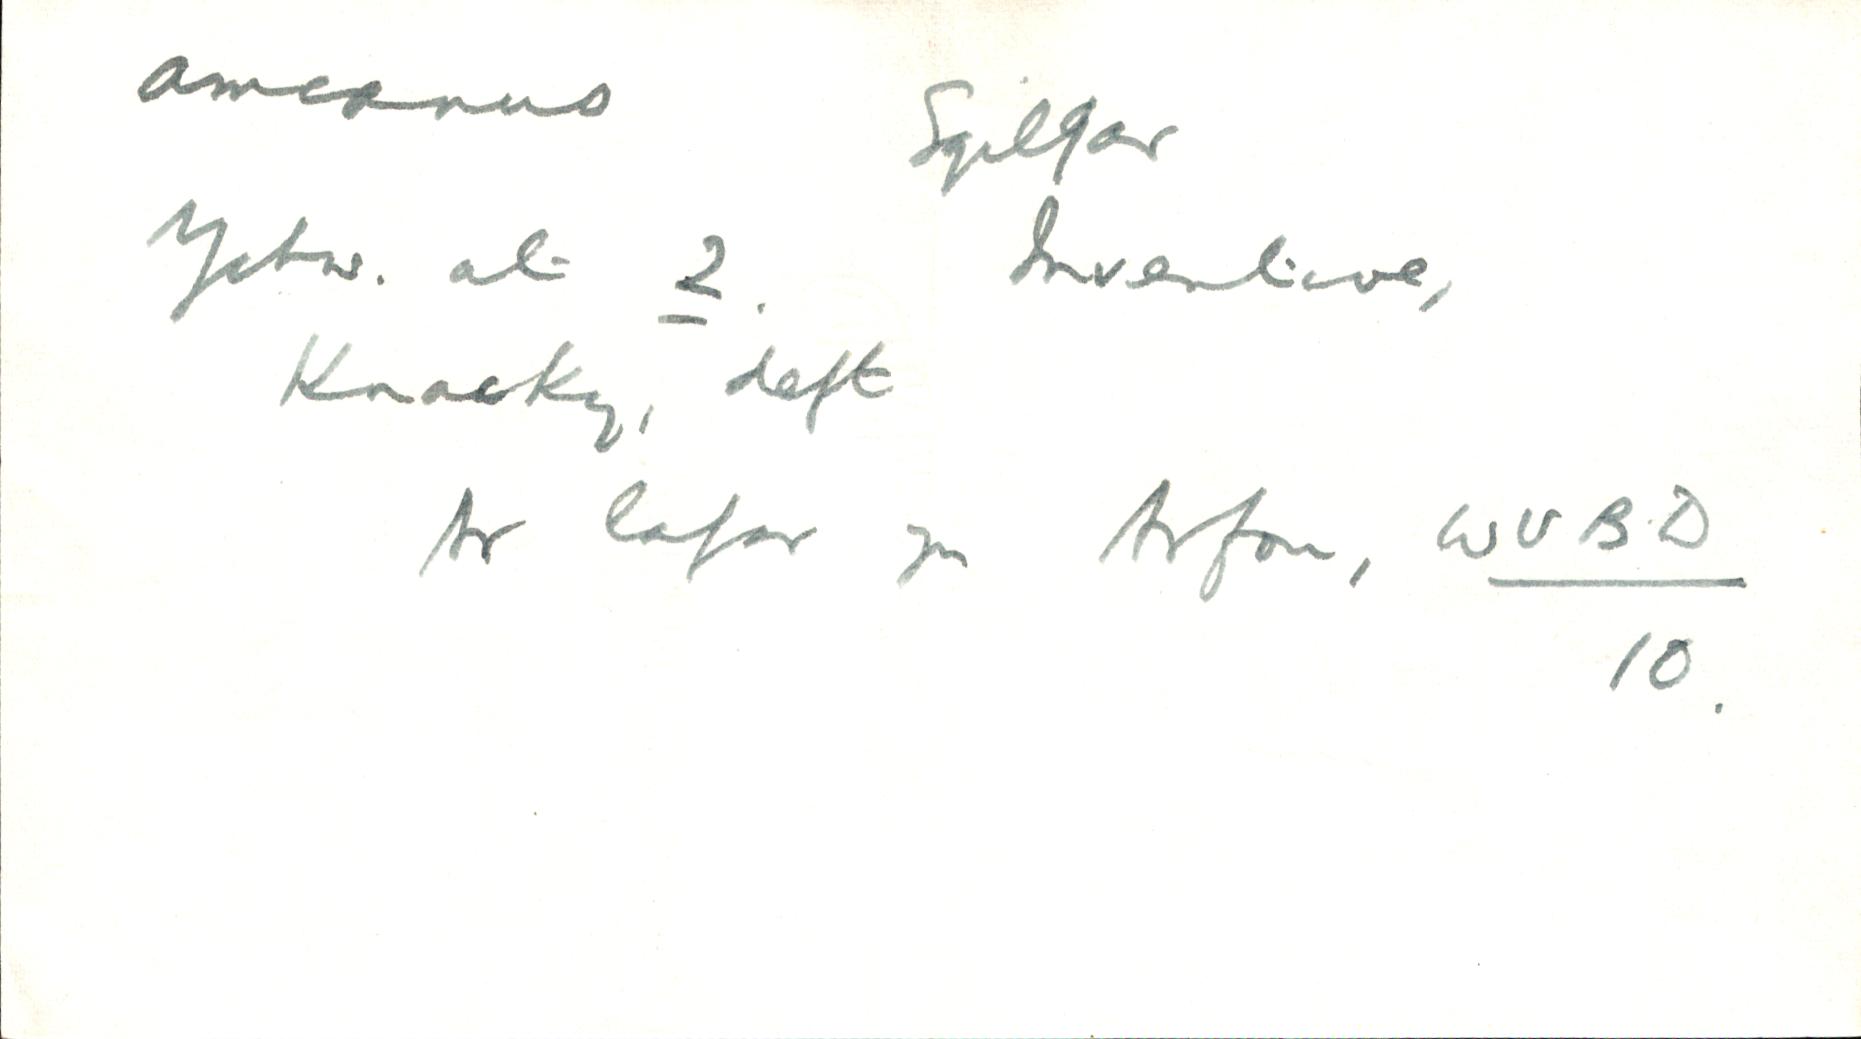 amcanus Sgilgar
Ystw. at 2. Inventive,
Knacky, deft
Ar lafar yn Arfon, WVBD
10.